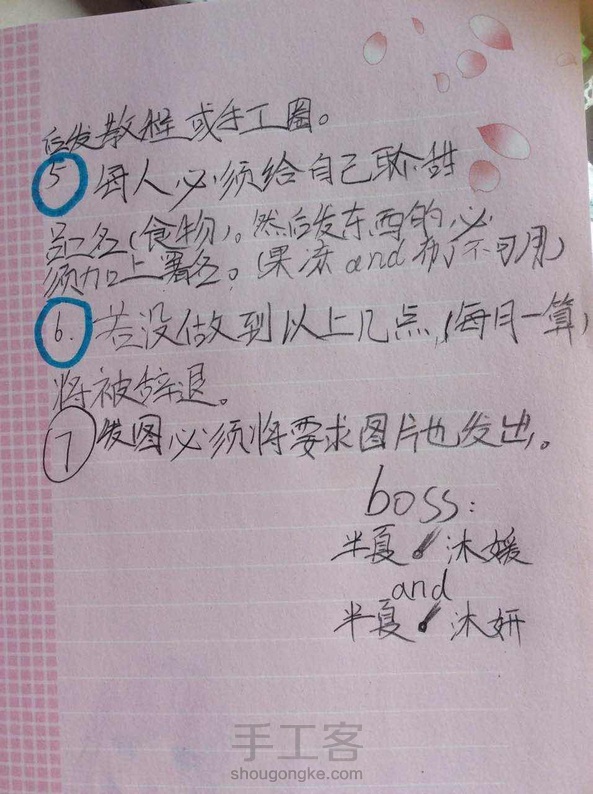 后发教程或手工圈。
⑤每人必须给自己取个甜
品名(食物)。然后发东西的必
须加上署名。(果冻and布丁不可用)
⑥.若没做到以上几点,(每月一算)
将被辞退。
⑦发图必须将要求图片也发出。
boss:
半夏 沐媛
and
半夏 沐妍
手工客
shougongke.com